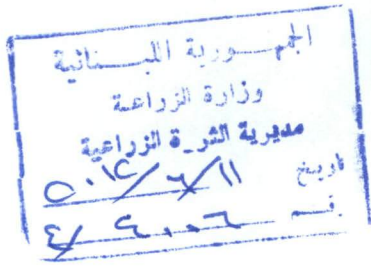 الجمهورية اللبنانية
وزارة الزراعة
مديرية الثروة الزراعية
تاريخ ١١/٦/٢٠١٢
رقم